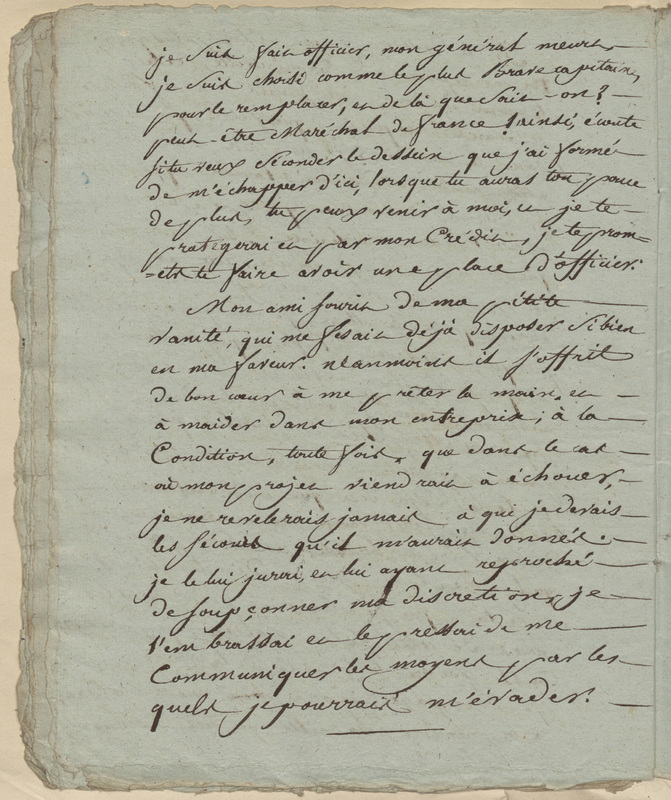 je suis fait officier, mon général meurt,
je suis choisi comme le plus Brave capitain,
pour le remplacer, et de là que sait-on?
peut-être Maréchal de france! ainsi, écoute
si tu veux seconder le dessein que j'ai formé
de m'échapper d'ici, lorsque tu auras ton pouce
de plus, tu peux venir à moi, et je te
protegerai et par mon Crédit, je te prom=
=ets te faire avoir une place d'officier.
Mon ami sourit de ma pétite
vanité, qui me fesait déjà disposer si bien
en ma faveur. néanmoins il s'offrit
de bon cœur à me prêter la main, et
à maider dans mon entreprise; à la
Condition, toute fois, que dans le cas
où mon projet viendrait à échouer,
je ne revelerais jamais à qui je devais
les sécours qu'il m'aurait donnés.
je le lui jurai, et lui ayant reproché
de soupçonner ma discretion, je
l'embrassai et le pressai de me
Communiquer les moyens par les
quels je pourrais m'évader.